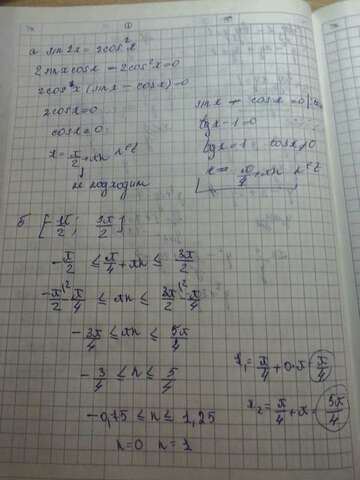 ①
а. sin2x = 2cos²x
2sinxcosx - 2cos²x=0
2cosx (sinx - cosx)=0
2cosx=0
cosx=0
x= π/2 + πn n∈Z
не подходит
sinx - cosx =0 | :cosx
tgx-1=0
tgx=1 cosx≠0
x= π/4 + πn n∈Z
б [-π/2; 3π/2]
-π/2 ≤ π/4 + πn ≤ 3π/2
-π/2 - π/4 ≤ πn ≤ 3π/2 - π/4
-3π/4 ≤ πn ≤ 5π/4
-3/4 ≤ n ≤ 5/4
-0,75 ≤ n ≤ 1,25
n=0 n=1
x₁= π/4 + 0·π = π/4
x₂= π/4 + π = 5π/4